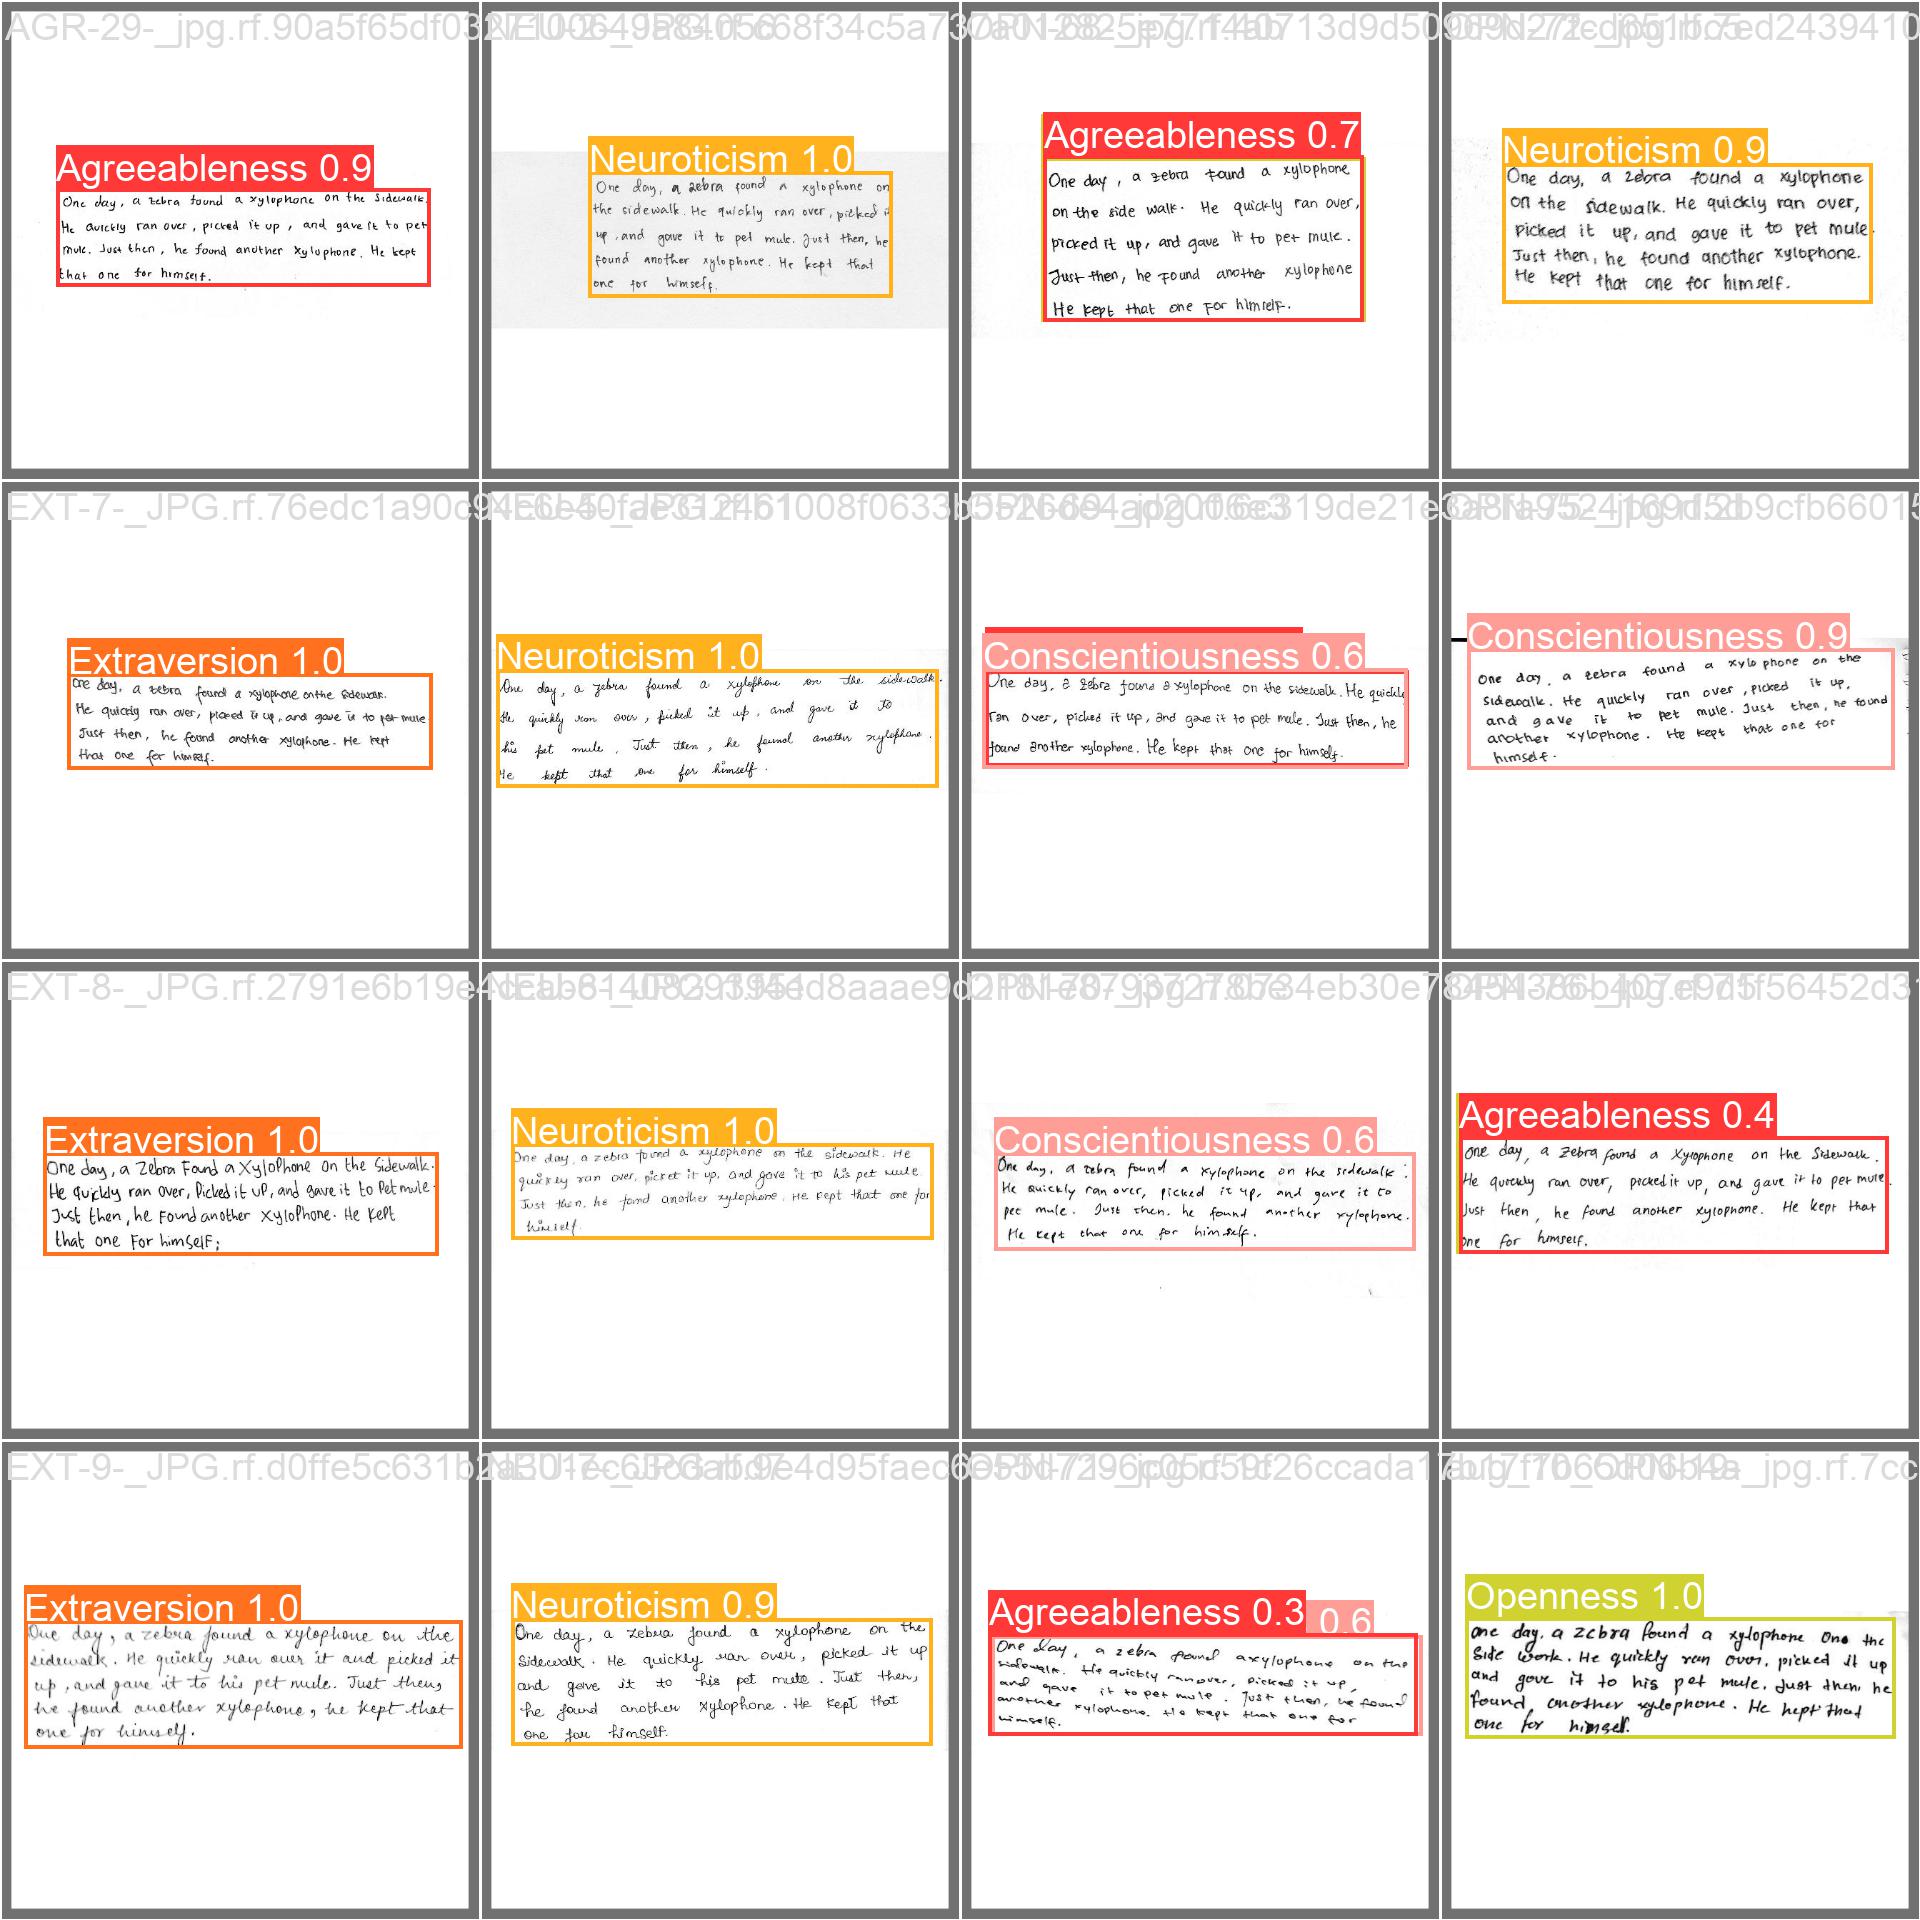 AGR-29-_jpg.rf.90a5f65df0327
Agreeableness 0.9
One day, a zebra found a xylophone on the sidewalk.
He quickly ran over, picked it up, and gave it to pet
mule. Just then, he found another xylophone. He kept
that one for himself.
Neuroticism 1.0
One day, a zebra found a xylophone on
the sidewalk. He quickly ran over, picked it
up, and gave it to pet mule. Just then, he
found another xylophone. He kept that
one for himself.
Agreeableness 0.7
One day, a zebra found a xylophone
on the side walk. He quickly ran over,
picked it up, and gave it to pet mule.
Just then, he found another xylophone
He kept that one for himself.
Neuroticism 0.9
One day, a zebra found a xylophone
on the sidewalk. He quickly ran over,
picked it up, and gave it to pet mule.
Just then, he found another xylophone.
He kept that one for himself.
EXT-7-_JPG.rf.76edc1a90c
Extraversion 1.0
One day, a zebra found a xylophone on the sidewalk.
He quickly ran over, picked it up, and gave it to pet mule
Just then, he found another xylophone. He kept
that one for himself.
Neuroticism 1.0
One day, a zebra found a xylophone on the sidewalk.
He quickly ran over, picked it up, and gave it to
his pet mule. Just then, he found another xylophone.
He kept that one for himself.
Conscientiousness 0.6
One day, a zebra found a xylophone on the sidewalk. He quickly
ran over, picked it up, and gave it to pet mule. Just then, he
found another xylophone. He kept that one for himself.
Conscientiousness 0.9
One day, a zebra found a xylophone on the
sidewalk. He quickly ran over, picked it up,
and gave it to pet mule. Just then, he found
another xylophone. He kept that one for
himself.
EXT-8-_JPG.rf.2791e6b19e4
Extraversion 1.0
One day, a Zebra Found a XyloPhone on the Sidewalk.
He quickly ran over, Picked it up, and gave it to Pet mule.
Just then, he Found another XyloPhone. He Kept
that one For himself;
Neuroticism 1.0
One day, a zebra found a xylophone on the sidewalk. He
quickly ran over, picket it up, and gave it to his pet mule
Just then, he found another xylophone. He kept that one for
himself.
Conscientiousness 0.6
One day, a zebra found a xylophone on the sidewalk.
He quickly ran over, picked it up, and gave it to
pet mule. Just then, he found another xylophone.
He kept that one for himself.
Agreeableness 0.4
One day, a Zebra found a Xyrophone on the Sidewalk.
He quickly ran over, picked it up, and gave it to pet mule.
Just then, he found another xylophone. He kept that
one for himself.
EXT-9-_JPG.rf.d0ffe5c631b2
Extraversion 1.0
One day, a zebra found a xylophone on the
sidewalk. He quickly ran over it and picked it
up, and gave it to his pet mule. Just then,
he found another xylophone, he kept that
one for himself.
Neuroticism 0.9
One day, a zebra found a xylophone on the
Sidewalk. He quickly ran over, picked it up
and gave it to his pet mule. Just then,
he found another xylophone. He kept that
one for himself.
Agreeableness 0.3
0.6
One day, a zebra found a xylophone on the
sidewalk. He quickly ran over, picked it up,
and gave it to pet mule. Just then, he found
another xylophone. He kept that one for
himself.
Openness 1.0
One day, a zebra found a xylophone One the
Side work. He quickly ran over, picked it up
and gove it to his pet mule, Just then he
found another xylophone. He kept that
one for himself.